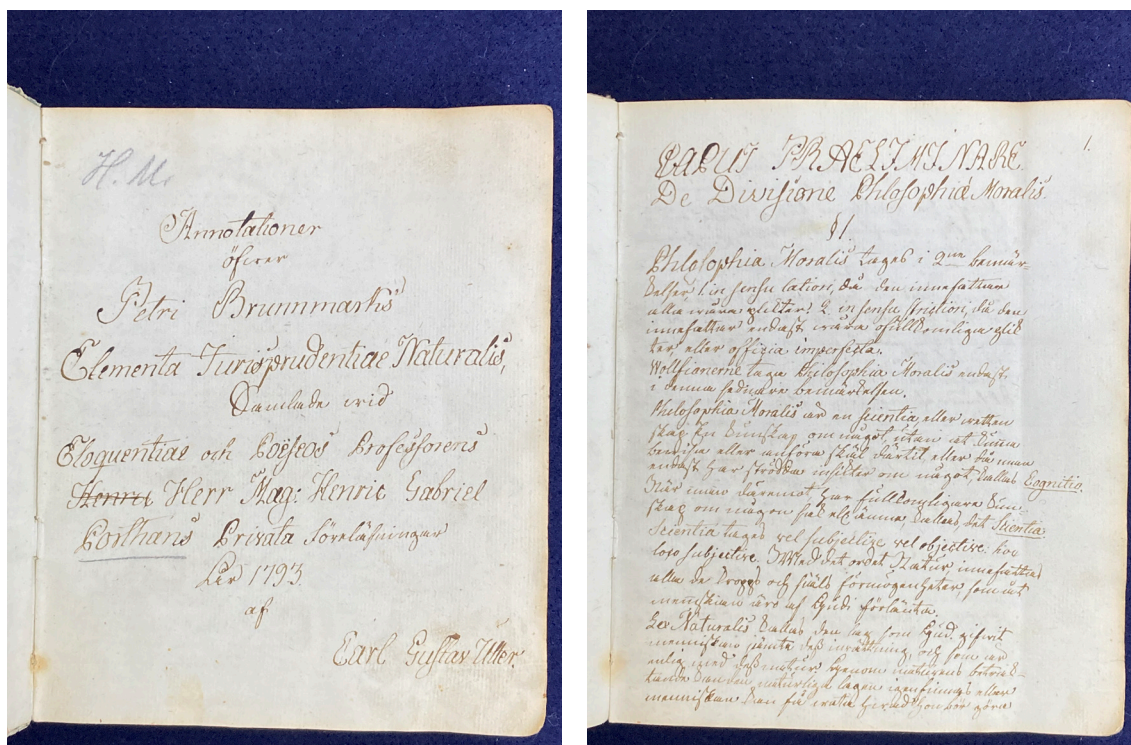 H. M.
Annotationer
öfwer
Petri Brunnmarks
Elementa Jurisprudentiae Naturalis,
Samlade wid
Eloquentiae och Poëseos Professorens
Henric Herr Mag: Henric Gabriel
Porthans Privata föreläsningar
år 1793.
af
Carl Gustav Utter
1.
CAPUT PRAELIMINARE
De Divisione Phlosophiæ Moralis.
§ 1.
Phlosophia Moralis tages i 2ne bemär-
kelser 1. in sensu latiori, då den innefattar
alla wåra plikter: 2. in sensu strictiori, då den
innefattar endast wåra ofullkomliga plik
ter, eller officia imperfecta.
Wolffianerne taga Philosophia Moralis endast
i denna sednare bemärkelsen.
Philosophia Moralis är en scientia eller wetten
skap. En kunskap om något, utan at kunna
bewisa eller anföra skäl därtil eller då man
endast har strödda insikter om något kallas Cognitio.
När man däremot har fullkomligare kun-
skap om någon kallas det Scientia.
Scientia tages vel subjective vel objective: hoc
loco subjective. Med det ordet Natur innefattas
alla de kropps och själs förmögenheter, som åt
menniskan äro af Gud förlänta.
Lex Naturalis kallas den lag som Gud gifwit
menniskan jämte dess inrättning och som är
enlig med dess natur. Genom naturens betrak-
tande kan den naturliga lagen igenfinnas eller
menniskan kan få weta hwad hon bör göra